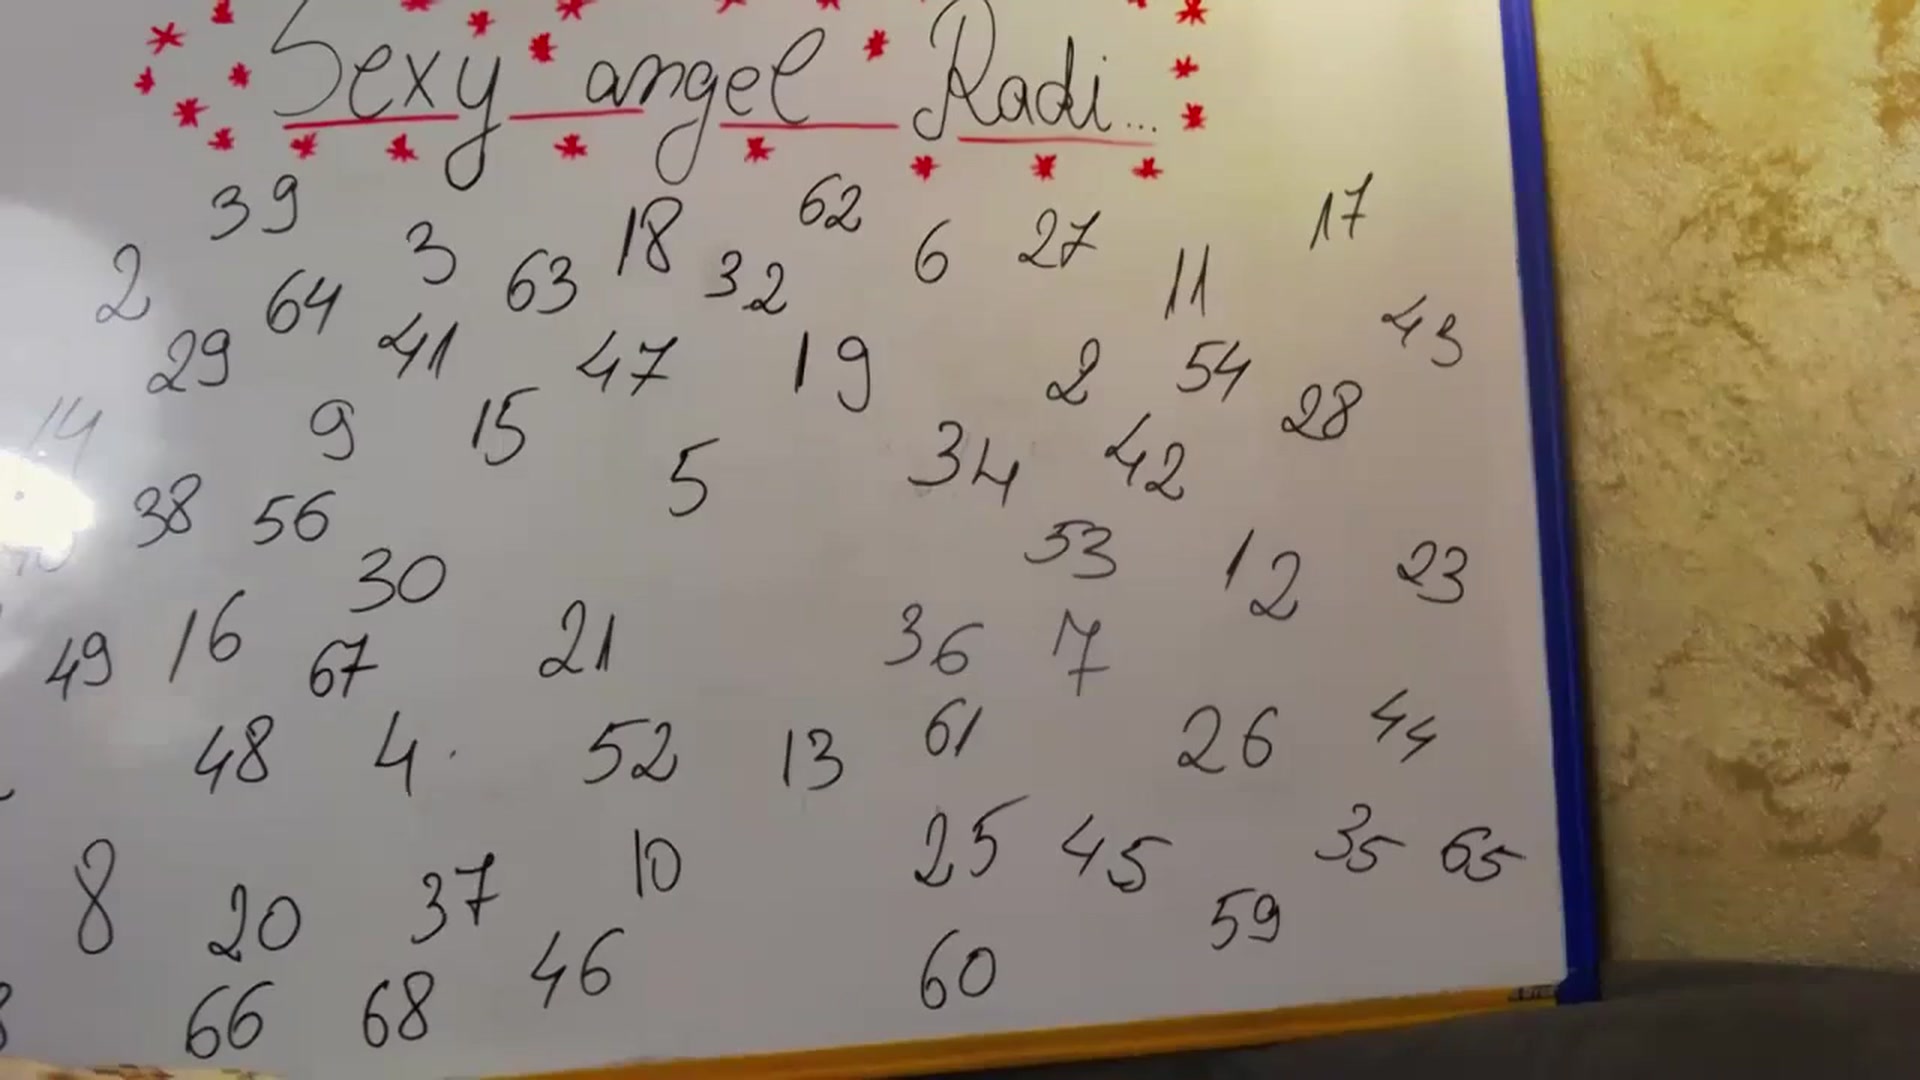 Sexy angel Radi...
39 3 18 62 6 27 17
2 64 63 32 11
29 41 47 19 2 54 43
14 9 15 5 34 42 28
38 56 30 53 12 23
49 16 67 21 36 7
48 4. 52 13 61 26 44
8 20 37 10 25 45 35 65
66 68 46 60 59